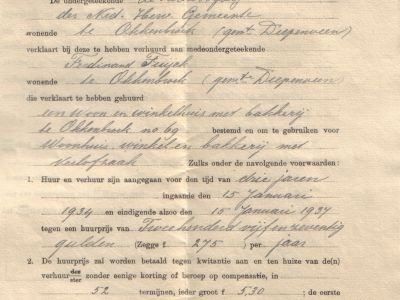 De ondergeteekende de
der Ned. Herv. Gemeente
wonende te Okkenbroek (gemt. Diepenveen)
verklaart bij deze te hebben verhuurd aan medeondergeteekende
Ferdinand
wonende te Okkenbroek (gemt. Diepenveen)
die verklaart te hebben gehuurd
een woon en winkelhuis met bakkerij
te Okkenbroek no 69 bestemd en om te gebruiken voor
Woonhuis, winkel en bakkerij met
verlofzaak Zulks onder de navolgende voorwaarden:
1. Huur en verhuur zijn aangegaan voor den tijd van drie jaren
ingaande den 15 Januari
1934 en eindigende alzoo den 15 Januari 1937
tegen een huurprijs van Tweehonderd vijf en zeventig
gulden (Zegge f 275 ) per jaar
2. De huurprijs zal worden betaald tegen kwitantie aan en ten huize van de(n)
verhuurder
ster zonder eenige korting of beroep op compensatie, in
52 termijnen, ieder groot f 5,30 ; de eerste